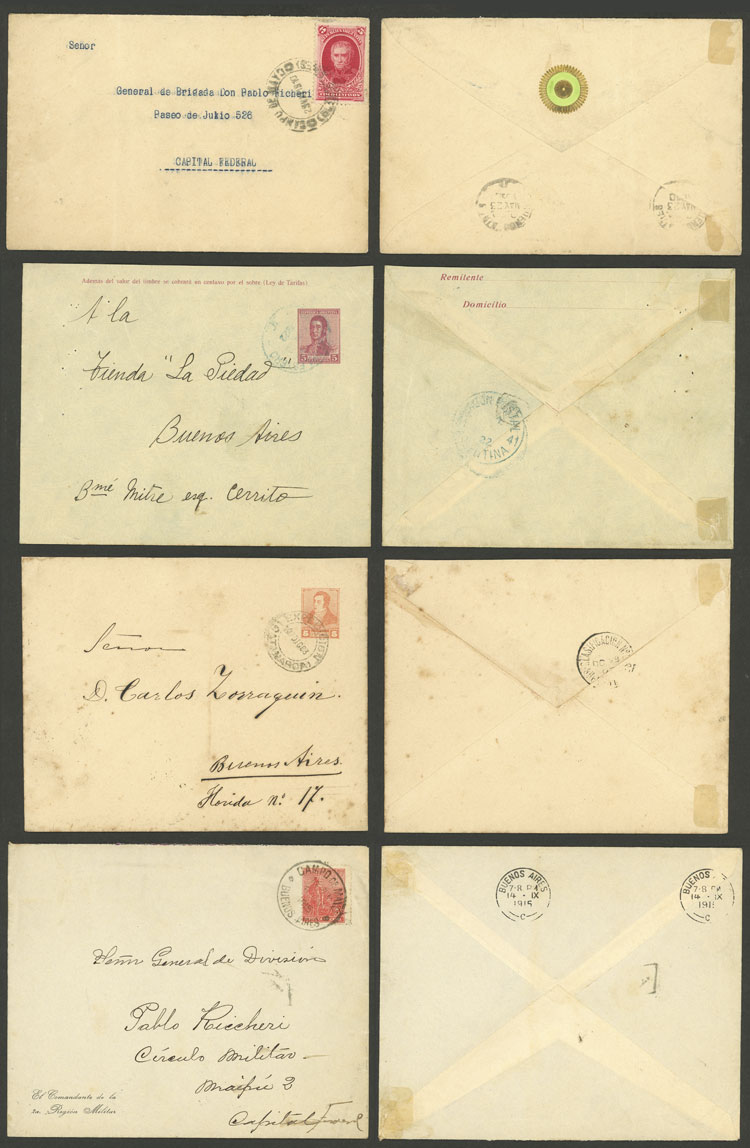 Señor
General de Brigada Don Pablo Richeri
Paseo de Julio 526
CAPITAL FEDERAL
5
CAMPO DE MAYO
Además del valor del timbre se cobrará un centavo por el sobre (Ley de Tarifas)
A la
Tienda "La Piedad
Buenos Aires
Bmé Mitre esq. Cerrito
5 5
Remitente
Domicilio
22
41
Señor
D. Carlos Zorraquin.
Buenos Aires.
Florida nº 17.
CAMPO DE MAYO
BUENOS AIRES
Señor General de División
Pablo Riccheri
Círculo Militar
Maipú 2
Capital Fed
El Comandante de la
2a. Región Militar
BUENOS AIRES
7-8 PM
14 - IX
1915
C
BUENOS
7-8 PM
14 - IX
191
C